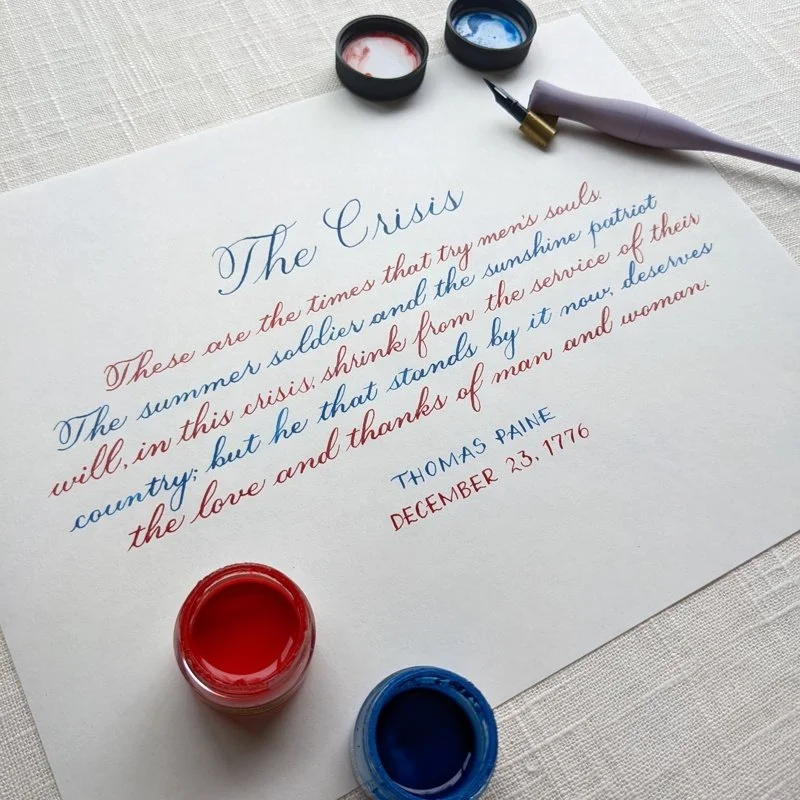 The Crisis
These are the times that try men's souls.
The summer soldier and the sunshine patriot
will, in this crisis, shrink from the service of their
country; but he that stands by it now, deserves
the love and thanks of man and woman.
THOMAS PAINE
DECEMBER 23, 1776